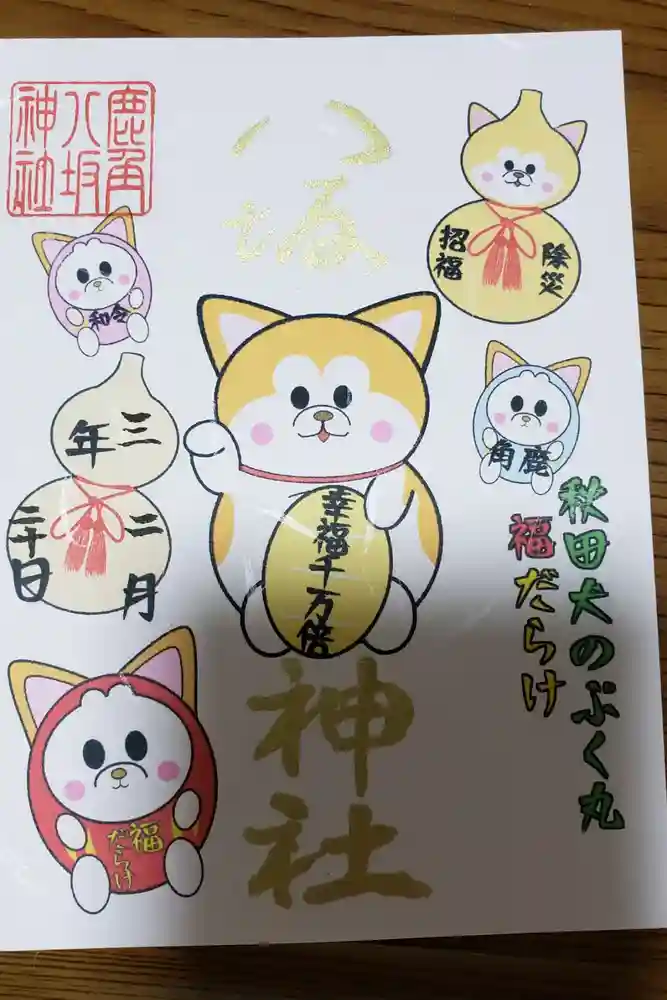 鹿角
八坂
神社
八坂
神社
招福
除災
令和
三年
二月
二十日
鹿角
幸福千万倍
秋田犬のぶく丸
福だらけ
福
だらけ